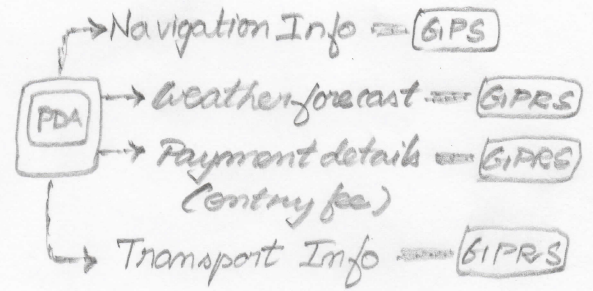 Navigation Info GPS
Weather forecast GPRS
PDA
Payment details GPRS
(entry fee)
Transport Info GPRS